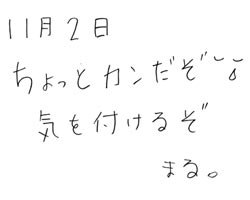 11月2日
ちょっとカンだぞ
気を付けるぞ
まる。